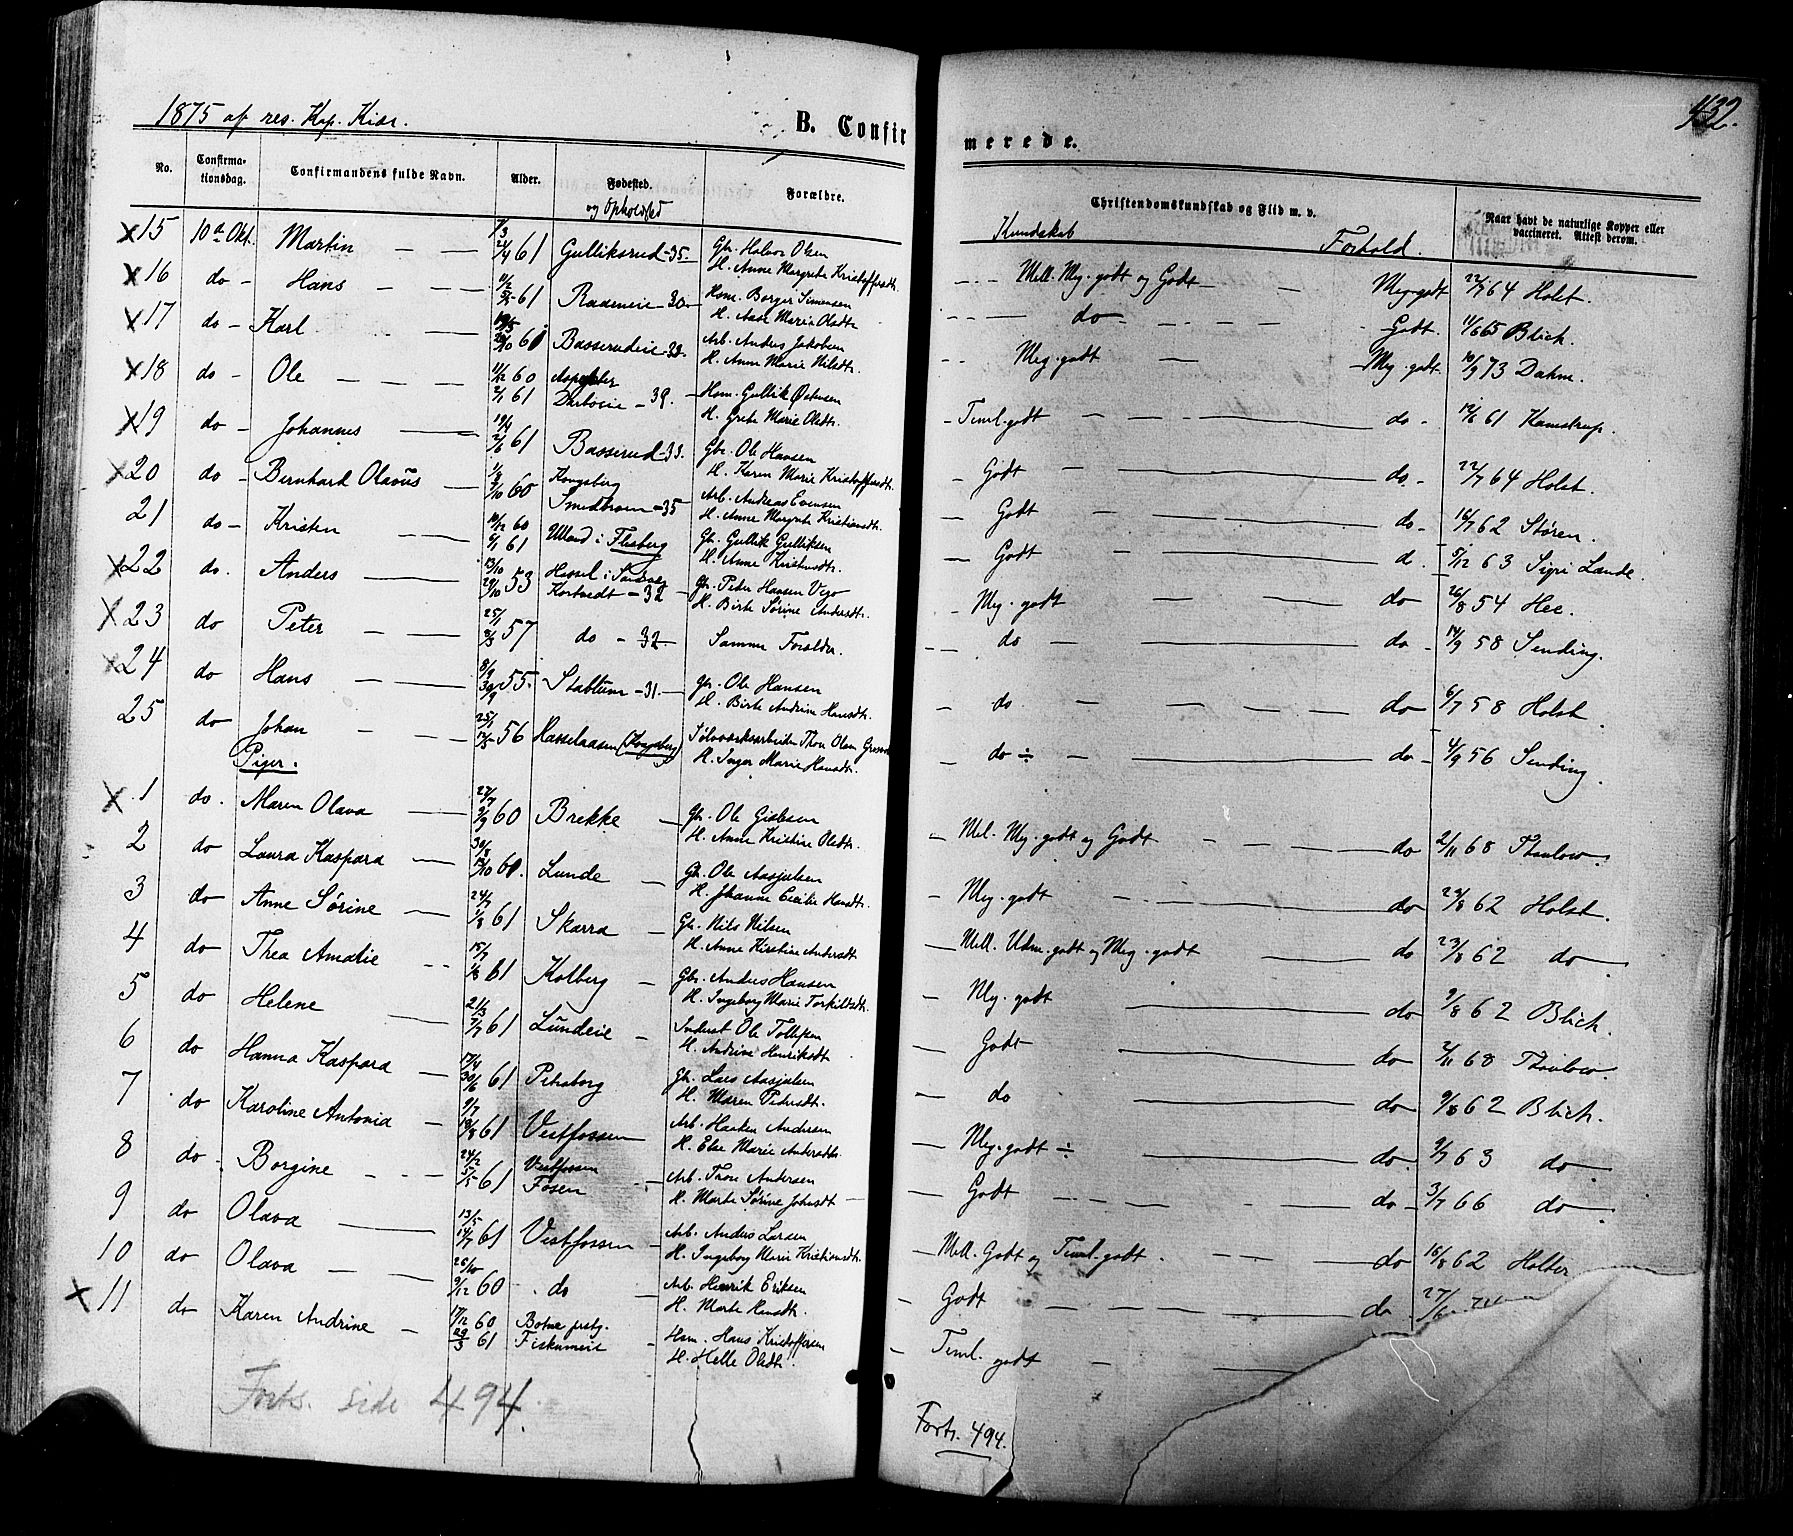 1875 af res. Kap. Kiær.
B. Confir
merede.
432.
No. Confirmationsdag. Confirmandens fulde Navn. Alder. Fødested. og Opholdsted Forældre.
Christendomskundskab og Flid m. v. Naar havt de naturlige Kopper eller vaccineret. Attest derom.
Kundskab Forhold.
x 15 10de Okt. Martin — — 24/4 61 Gulliksrud - 35. Gbr. Halvor Olsen
H. Anne Margrete Kristoffersdt. Mell. Meg. godt og Godt — Meg. godt 22/7 64 Holst.
x 16 do - Hans — — 61 Raaeneie - 30 Hsm. Borger Simensen
H. Aase Marie Olsdtr. do — Godt. 11/6 65 Blich.
x 17 do - Karl — 60 Basserudeie - 33. Arb. Anders Jakobsen
H. Anne Marie Nilsdtr. Meg. godt — Meg. godt. 10/9 73 Dahm.
x 18 do - Ole — — 11/12 60
2/1 61 Hsm. Gullik Østensen
- 39. H. Grete Marie Olsdtr. Teml. godt — do - 12/6 61 Kamstrup.
x 19 do - Johannes — 19/4
2/6 61 Basserud - 33. Gbr. Ole Hansen
H. Karen Marie Kristoffersdt. Godt — do. 22/7 64 Holst.
x 20 do - Bernhard Olavus — 60 Kongsberg
- 35 Arb. Andreas Evensen
H. Anne Margrete Kristiansdt. Godt — do - 16/7 62 Støren.
21 do - Kristen — 10/12 60
6/1 61 Ulland i Flesberg Gbr. Gullik Gulliksen
H. Anne Kristensdt. Godt — d. 5/12 63 Sigri Lande.
x 22 do. Anders — 13/10
29/10 53 Hassel i Sandsvær
Kortvedt - 32 Gbr. Peder Hansen Vego
H. Birte Sørine Andersdt. Meg. godt — do 26/8 54 Hee.
x 23 do Peter — 25/1
8/3 57 do - 32 Samme Forældre. do — do - 14/9 58 Sending.
x 24 do Hans — 8/9
30/9 55. Stablum - 31 Gbr. Ole Hansen
H. Birte Andrine Hansdt. do — do 6/7 58 Holst.
25 do Johan — 25/1
56 Hasselaasen (Kongsberg) Sølvværksarbeider Thor Olsen
H. Inger Marie Hansdt. do ÷ — do - 4/9 56 Sending.
Piger.
x 1 do. Maren Olava — 27/7
9/9 60 Brekke Gbr. Ole Gislesen
H. Anne Kristine Olsdtr. Mel. Meg. godt og Godt — do 2/11 68 Thaulow.
2 do Laura Kaspara — 30/8
14/10 60. Lunde Gbr. Ole Aasjulsen
H. Johanne Cecilie Hansdt. Meg. godt — do 23/8 62 Holst.
3 do Anne Sørine — 24/7
1/8 61 Skarra Gbr. Nils Nilsen
H. Anne Kirstine Andersdt Mell. Udm. godt og Meg. godt do 23/8 62 do
4 do Thea Amalie - - 15/7
1/8 61 Kolberg Gbr. Anders Hansen
H. Ingeborg Marie Torkildsdt. Meg. godt — do 9/8 62 Blich.
5 do Helene — 21/3
7/7 61 Lundeie Inderst Ole Tollefsen
H. Andrine Henriksdt. Godt — do 2/11 68 Thaulow.
6 do Hanna Kaspara — 17/4
30/6 61 Petersborg Gbr. Lars Aasjulsen
H. Maren Pedersdt. do — do 9/8 62 Blich.
7 do Karoline Antonia — 9/7
18/8 61 Vestfossen Arb. Haaken Andersen
H. Else Marie Andersdtr. Meg. godt ÷ — do. 9/7 63 do
8 do - Borgine — 24/2
5/5 61 Vestfossen
Fosen Arb. Thor Andersen
H. Marte Sørine Johnsdt. Godt — do - 3/7 66 do
9 do Olava — 13/5
14/7 61 Vestfossen Arb. Anders Larsen
H. Ingeborg Marie Kristiansdt. Mell. Godt og Teml. godt. — do 16/8 62 Holter
10 do Olava — 26/10
9/12 60 do Arb. Henrik Eriksen
H. Marte Hansdt. Godt — do 27/6
x 11 do Karen Andrine — 17/12 60
29/3 61 Botne prstg.
Fiskumeie Hsm. Hans Kristoffersen
H. Helle Olsdt. Teml. godt —
Forts. side 494.
Forts. 494.